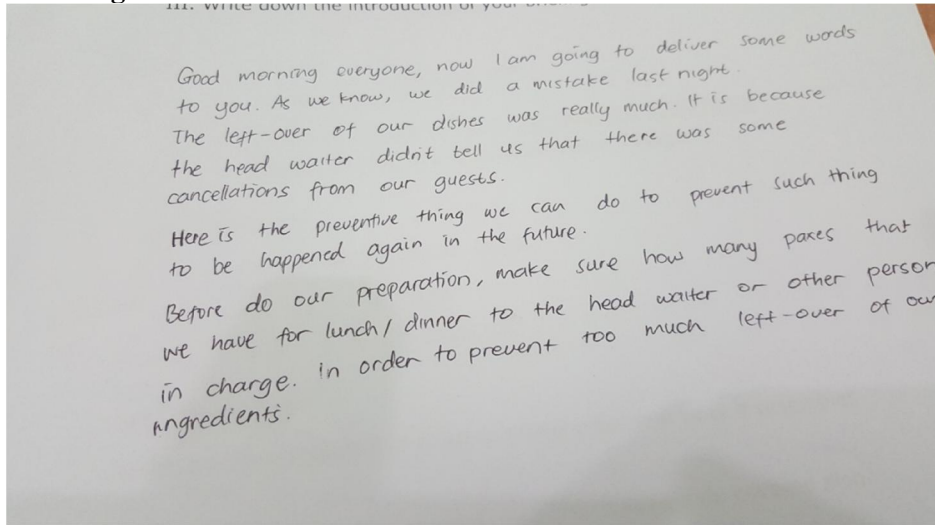 III. Write down the introduction of your
Good morning everyone, now I am going to deliver some words
to you. As we know, we did a mistake last night.
The left-over of our dishes was really much. It is because
the head waiter didn't tell us that there was some
cancellations from our guests.
Here is the preventive thing we can do to prevent such thing
to be happened again in the future.
Before do our preparation, make sure how many paxes that
we have for lunch/dinner to the head waiter or other person
in charge. In order to prevent too much left-over of our
ingredients.